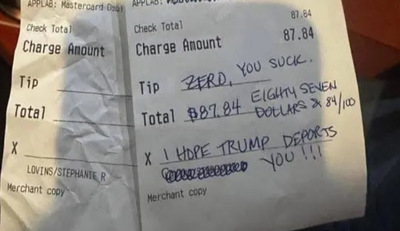 APPLAB: Mastercard
Check Total
Charge Amount
Tip
Total
X
LOVINS/STEPHANIE R
Merchant copy
APPLAB:
87.84
Check Total
87.84
Charge Amount
Tip ZERO, YOU SUCK.
Total $87.84 EIGHTY SEVEN
DOLLARS & 84/100
X I HOPE TRUMP DEPORTS
YOU!!!
Merchant copy